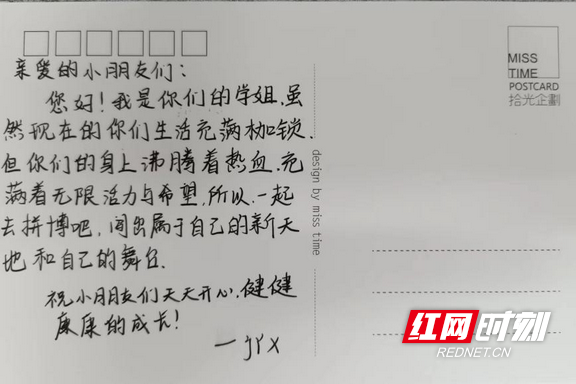 亲爱的小朋友们：
您好！我是你们的学姐，虽
然现在的你们生活充满枷锁，
但你们的身上沸腾着热血，充
满着无限活力与希望，所以，一起
去拼博吧，闯出属于自己的新天
地和自己的舞台．
祝小朋友们天天开心，健健
康康的成长！
design by miss time
MISS
TIME
POSTCARD
拾光企劃
红网时刻
REDNET.CN